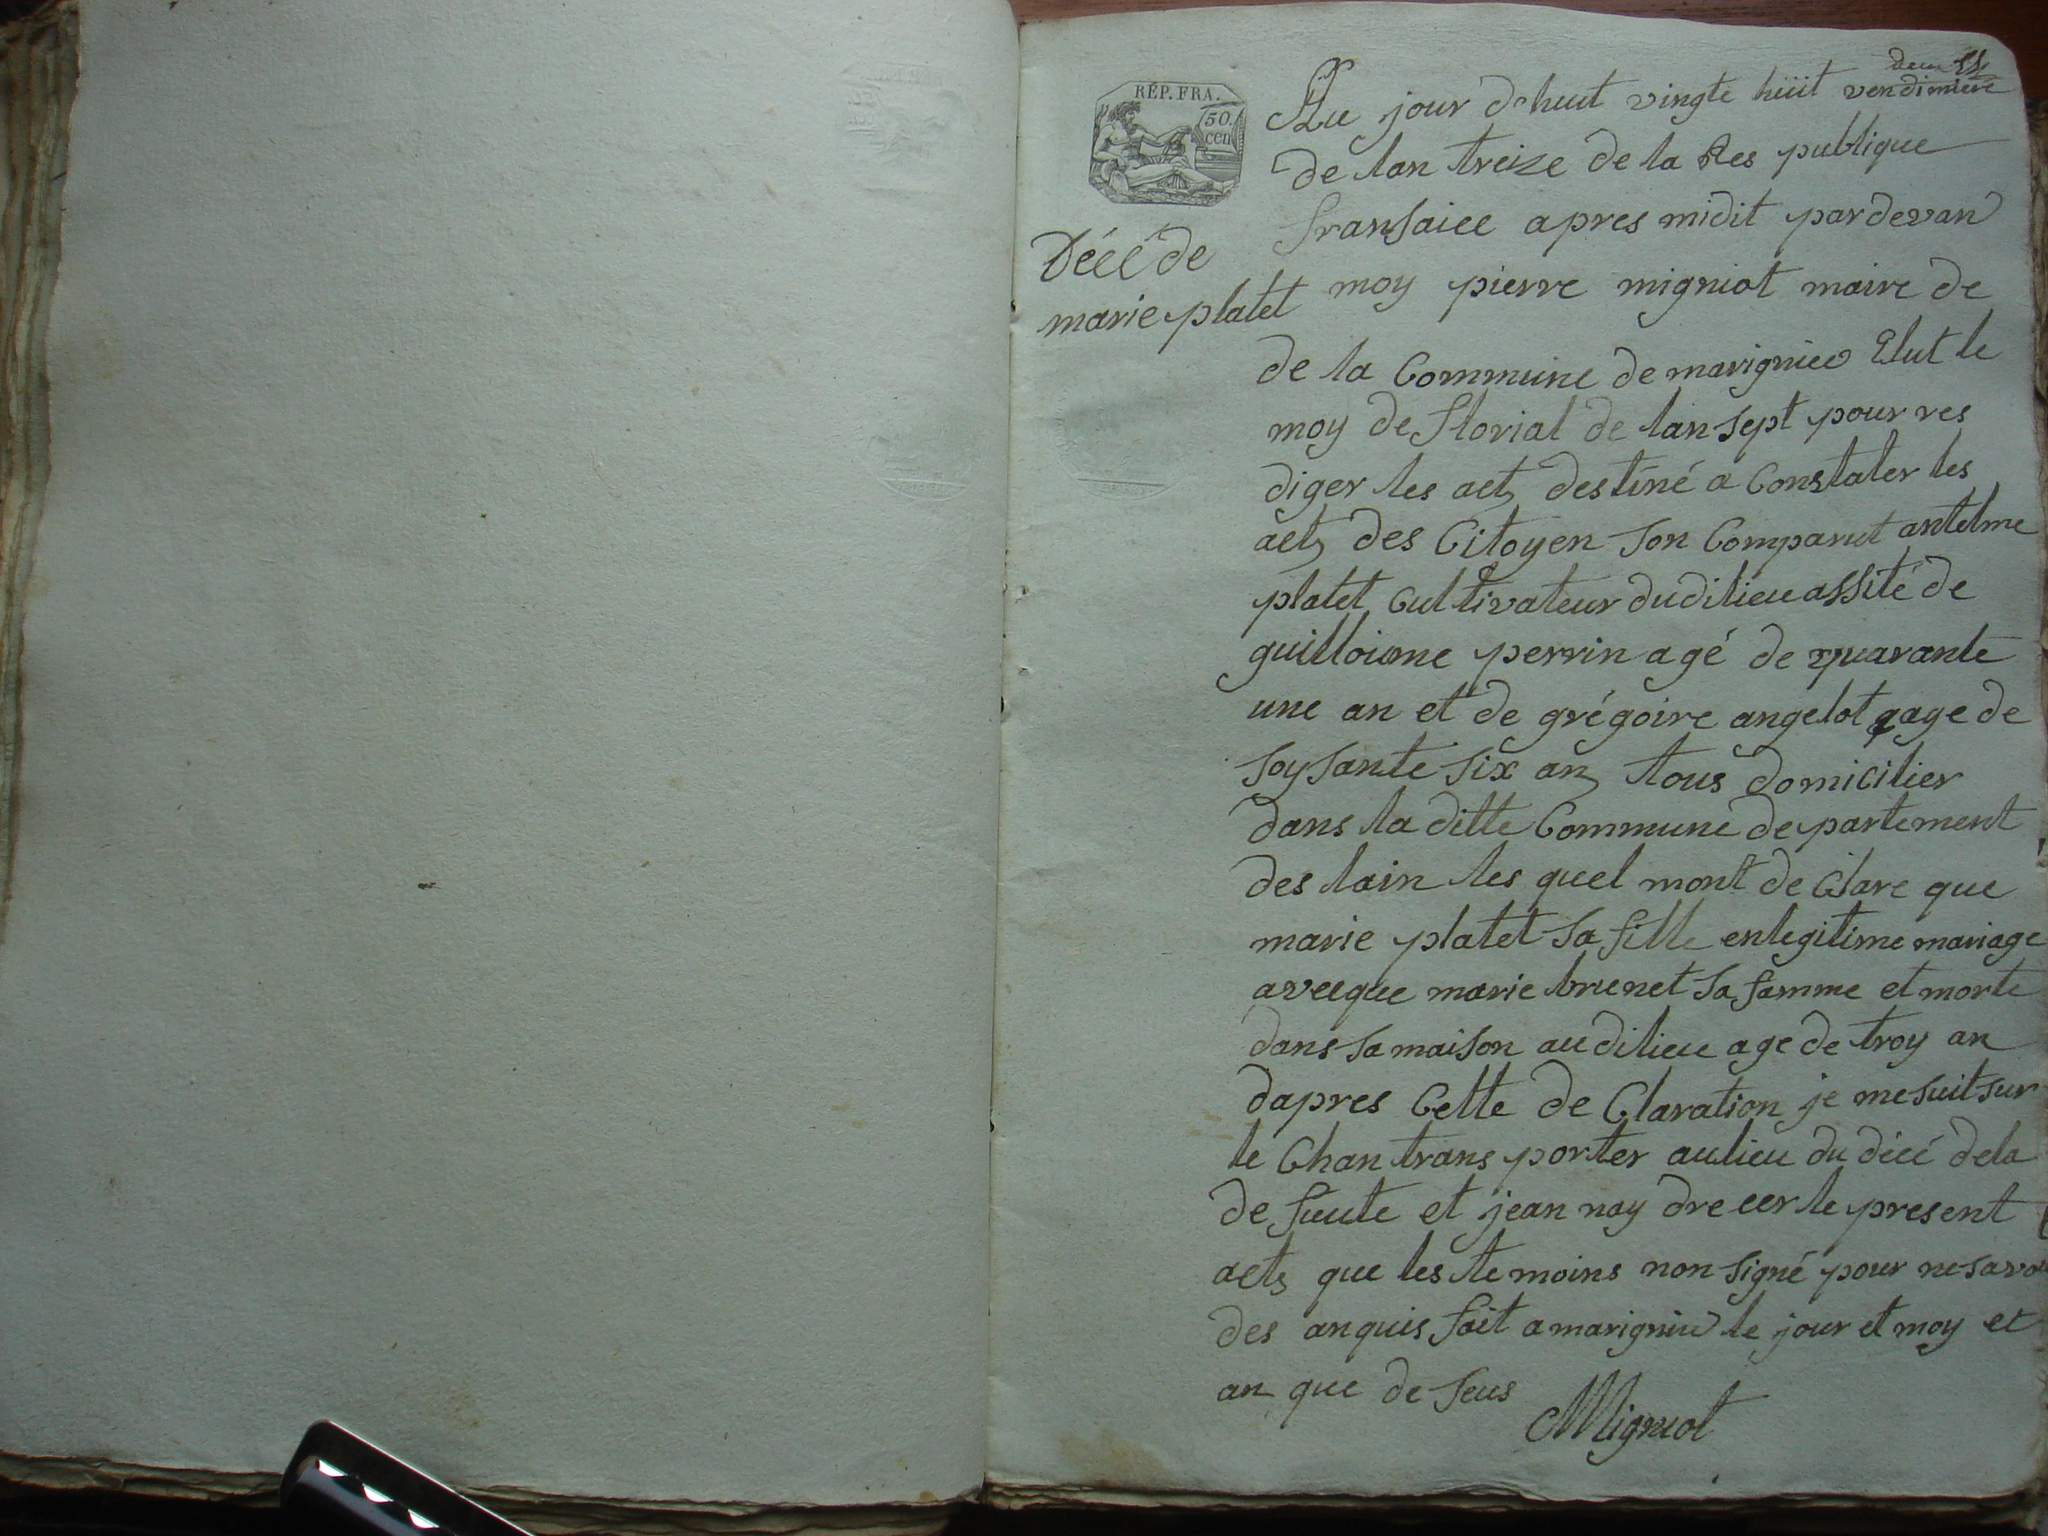 RÉP. FRA.
50.
cen
Décé de
marie platet
deux
Au jour dhuut vingte huit vendimiere
de lan treize de la Res publique
fransaice apres midit pardevan
moy pierre migniot maire de
de la Commune de marignieu Elut le
moy de florial de lan sept pour res
diger les act destiné a Constater les
act des Citoyen Son Comparut antelme
platet Cultivateur dudilieu assité de
guilloiome perrin agé de quarante
une an et de grégoire angelot age de
soysante six an tous domicilier
dans la ditte Commune departement
des lain les quel mont de Clare que
marie platet sa fille enlegitime mariage
avecque marie brunet sa famme et morte
dans sa maison audilieu age de troy an
dapres Cette de Claration je me suit sur
le Chan trans porter aulieu du décé dela
de funte et jean nay dreccer le present
acts que les te moins non signé pour ne savoi
des anquis fait a marignieu le jour et moy et
an que de seus
Migniot